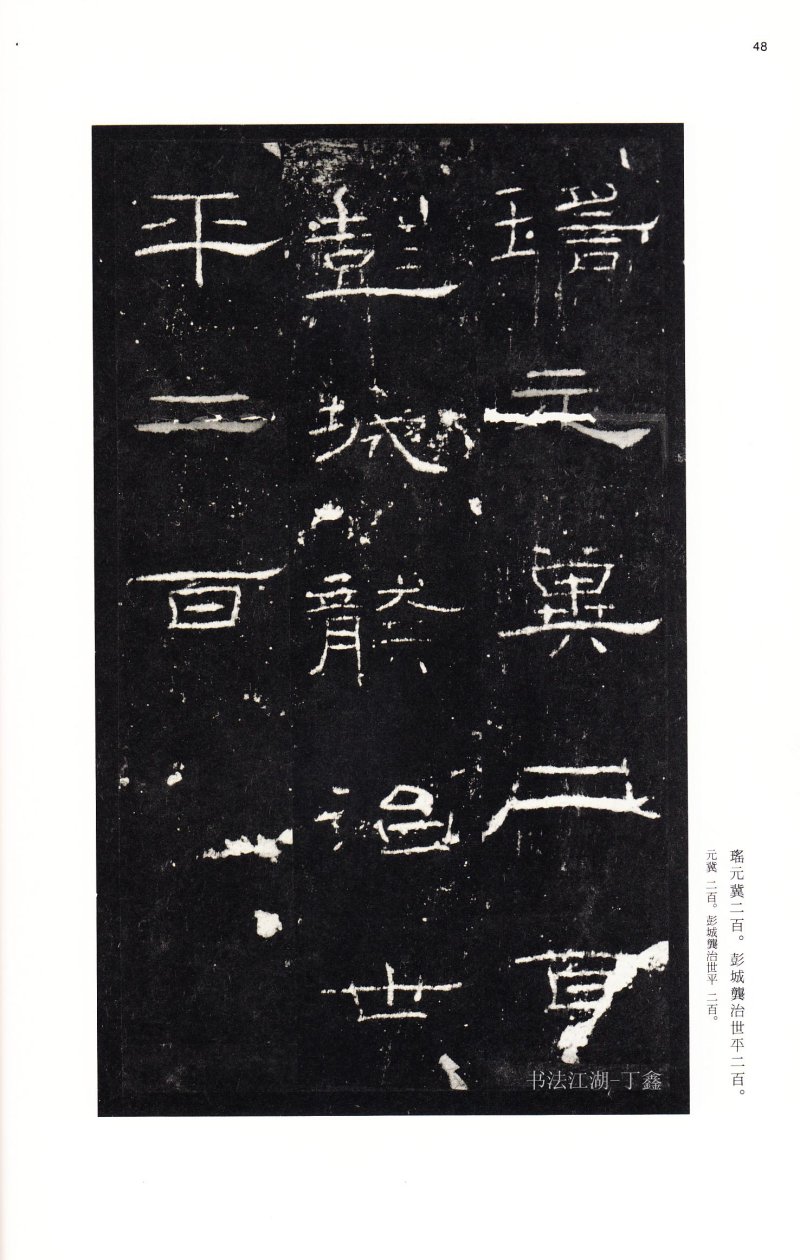 48
瑤元冀二百
彭城龔治世
平二百
瑤元冀二百。彭城龔治世平二百。
元冀 二百。彭城龔治世平 二百。
书法江湖-丁鑫